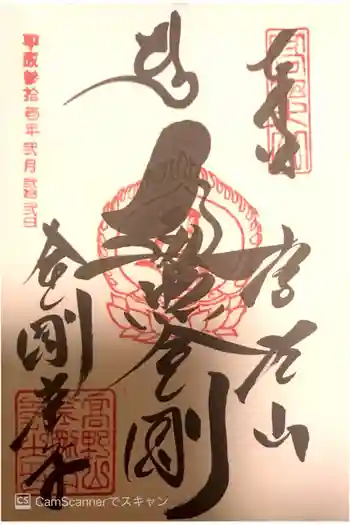 奉拝
高野山
遍照金剛
金剛峯寺
平成参拾壱年弐月
高野山
CS CamScannerでスキャン